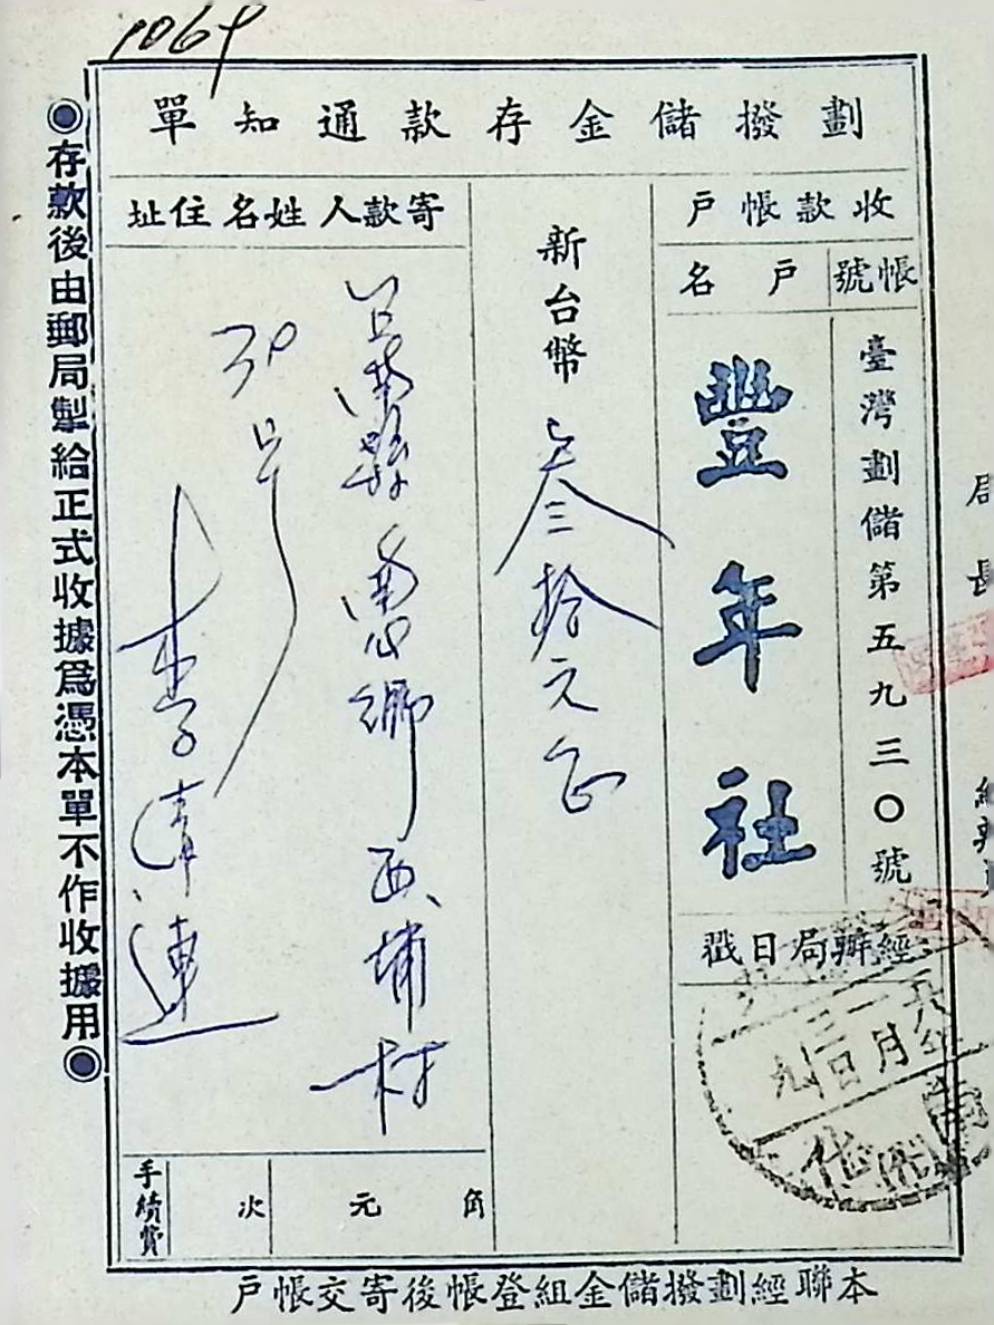 1069
劃撥儲金存款通知單
收款帳戶
帳號
戶名
臺灣劃儲第五九三〇號
豐年社
經辦局日戳
新台幣
叁拾元正
寄款人姓名住址
台南縣
鄉西埔村
30号
李清連
手續費
次
元
角
◉存款後由郵局掣給正式收據為憑本單不作收據用◉
本聯經劃撥儲金組登帳後寄交帳戶
局長